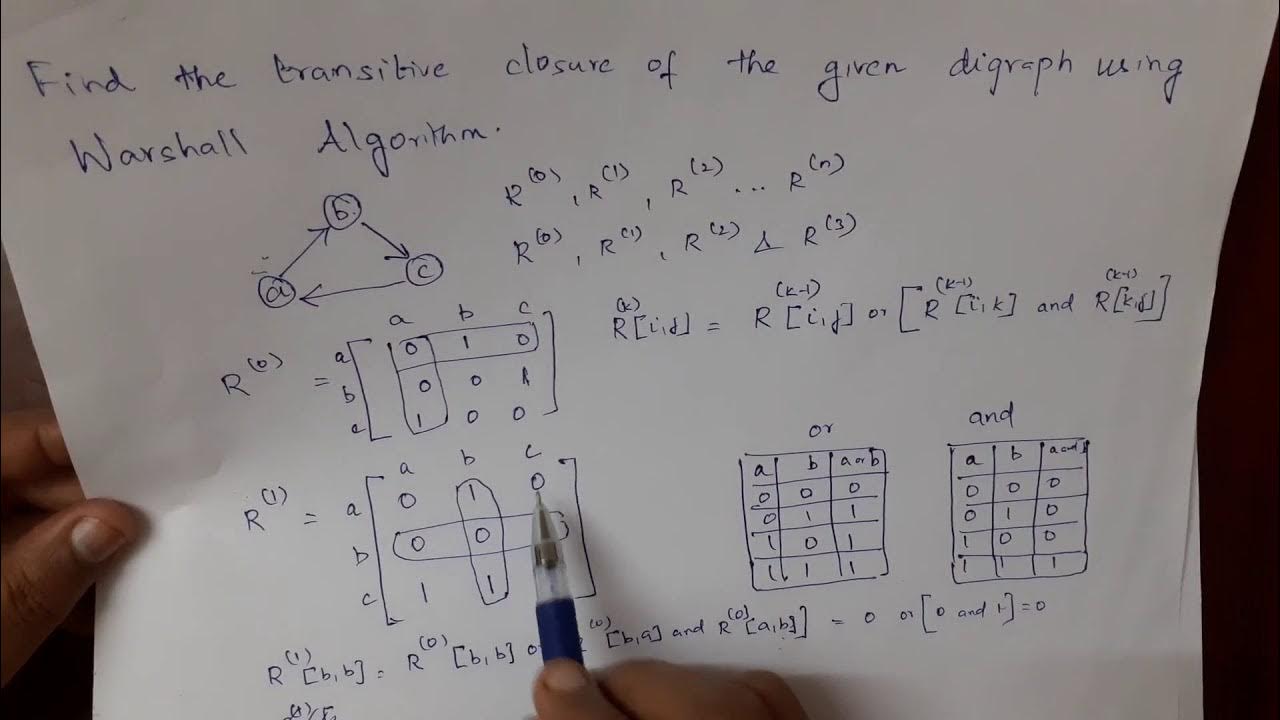 Find the transitive closure of the given digraph using
Warshall Algorithm.
R(0), R(1), R(2) ... R(n)
R(0), R(1), R(2) & R(3)
b
c
a
R(k)[i,j] = R(k-1)[i,j] or [R(k-1)[i,k] and R(k-1)[k,j]]
a b c
R(0) = a 0 1 0
b 0 0 1
c 1 0 0
a b c
R(1) = a 0 1 0
b 0 0
c 1 1
or
a b a or b
0 0 0
0 1 1
1 0 1
1 1 1
and
a b a and b
0 0 0
0 1 0
1 0 0
1 1 1
R(1)[b,b] = R(0)[b,b] [b,a] and R(0)[a,b]] = 0 or [0 and 1] = 0